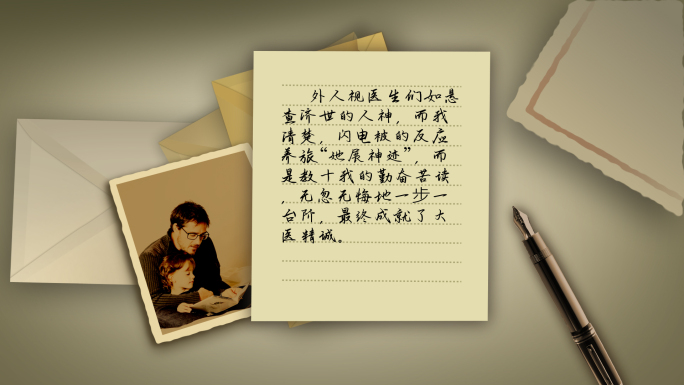 外人视医生们如悬
壶济世的人神，而我
清楚，闪电被的反应
养旅“她展神迹”，而
是数十我的勤奋苦读
，无怨无悔地一步一
台阶，最终成就了大
医精诚。